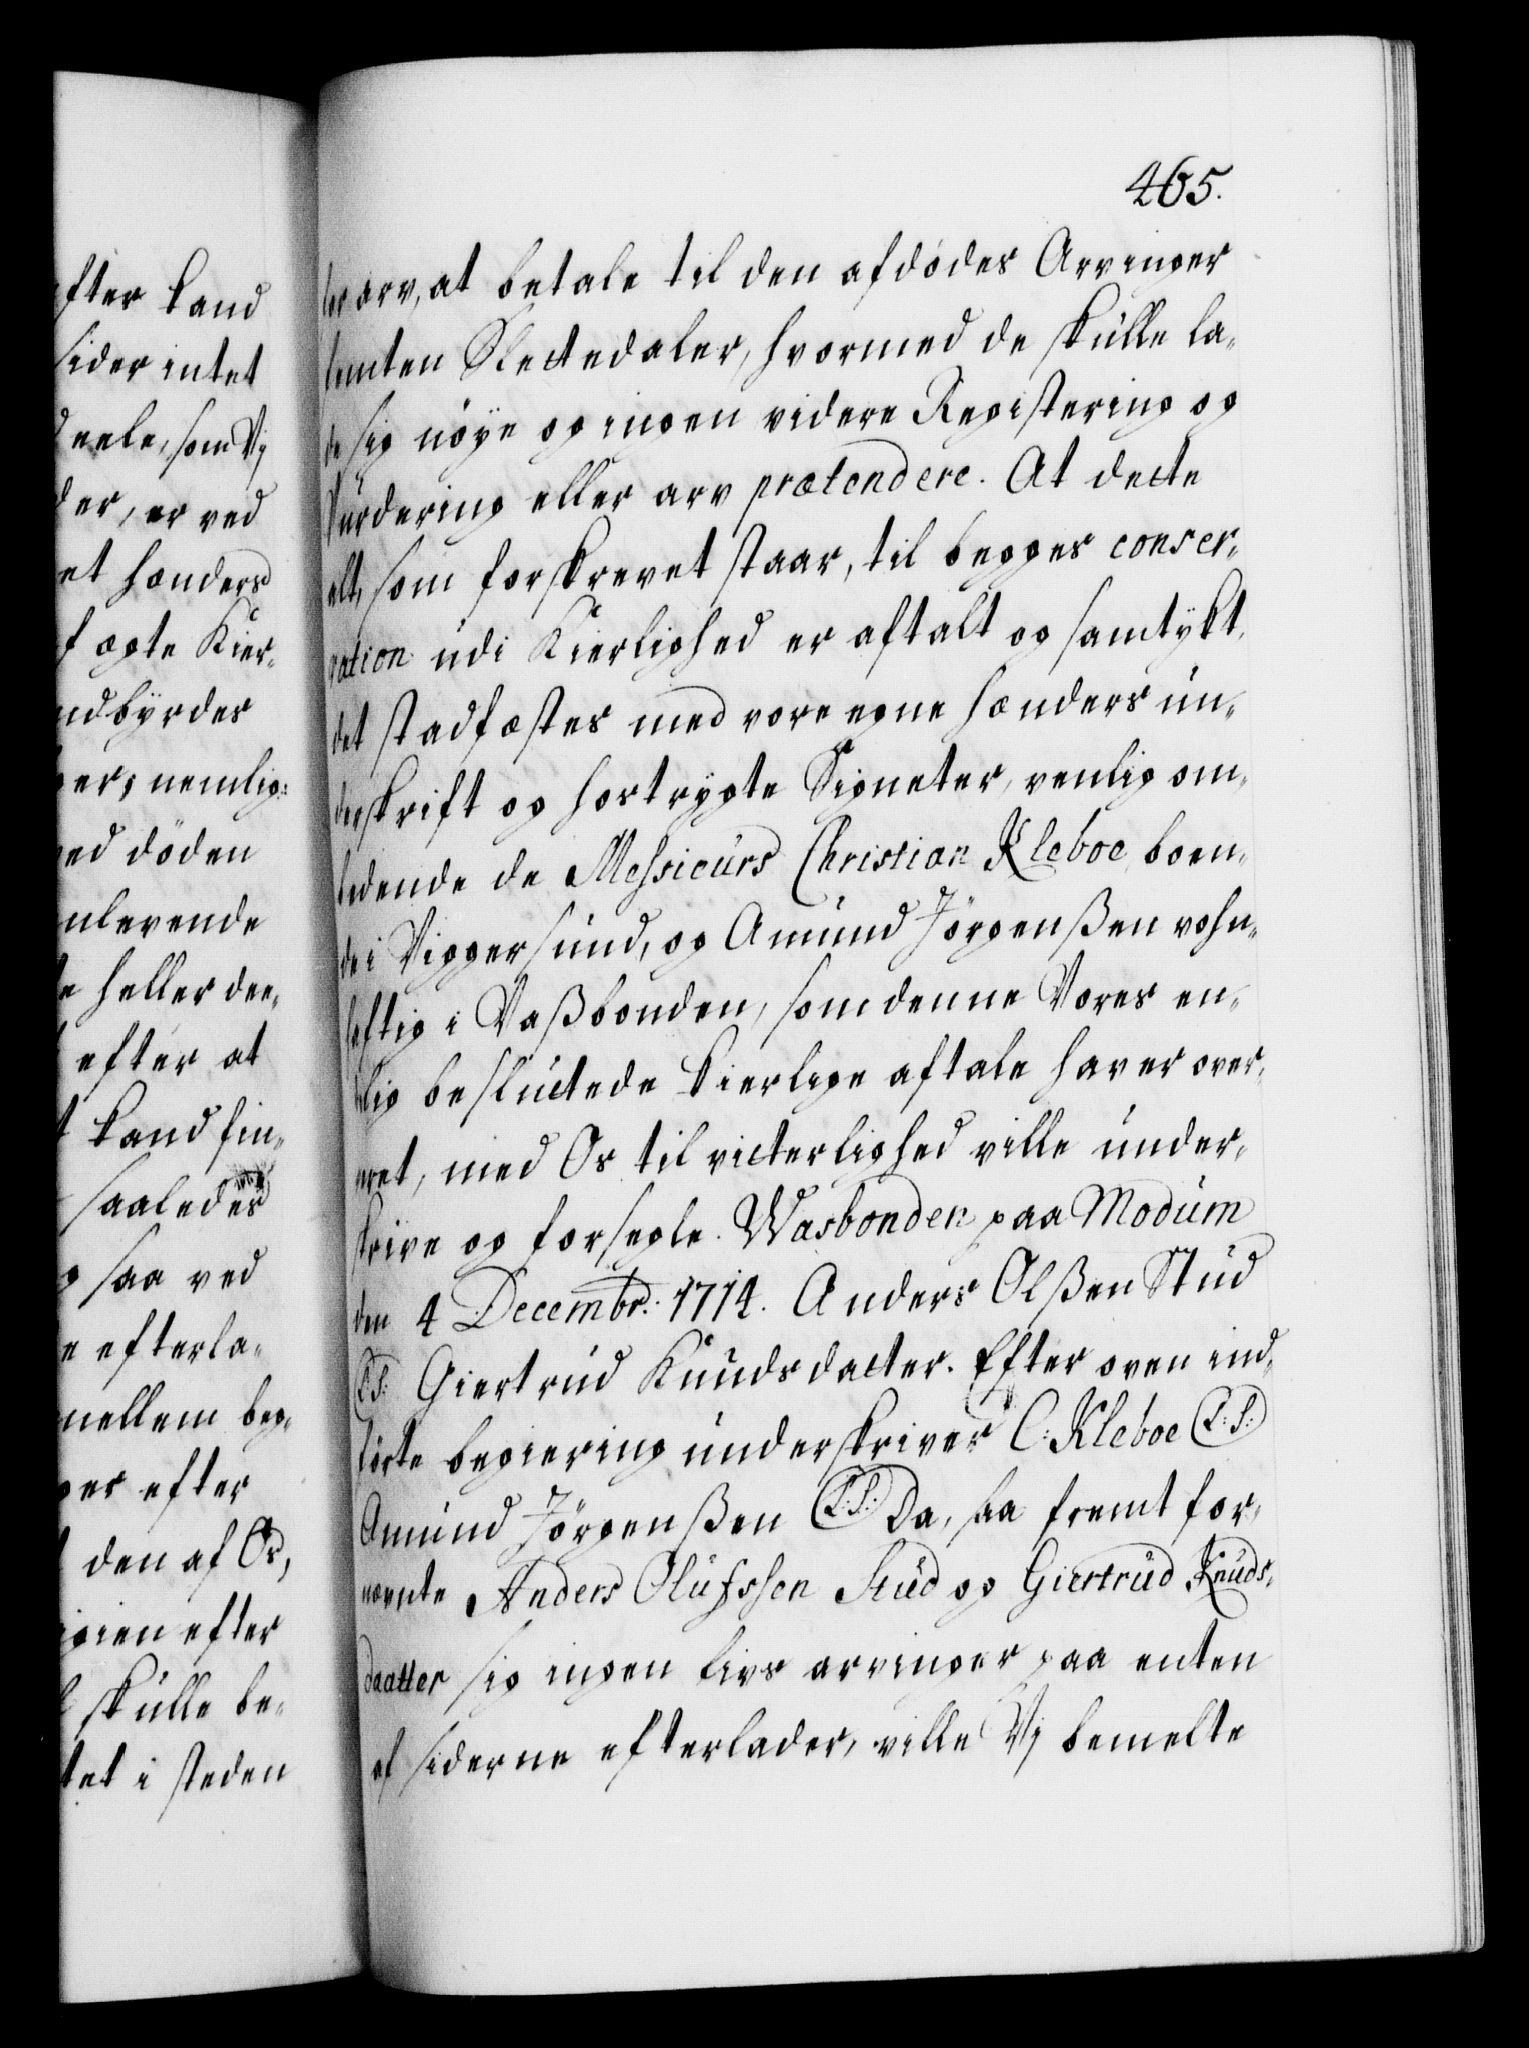 465.
fter kand
sider intet
deele, som Vj
der, er ved
et hænders
f ægte Kier-
ndbÿrdes
ger, nemlig:
ved döden
nlevende
e heller dee-
efter at
t kand fin-
saaledes
saa ved
e efterla-
mellem beg-
ger efter
den af Os,
igien efter
skulle be-
tet i steden
for arv, at betale til den afdødes Arvinger
femten Slectedaler, hvormed de skulle la-
de sig nöye og ingen videre Registering og
Vurdering eller arv prætendere. At dette
alt, som forskrevet staar, til begges conser-
vation udi Kierlighed er aftalt og samtÿkt,
det stadfæstes med vore egne hænders un-
derskrift og hostrygte Signeter, venlig om-
bedende de Messieurs Christian Kleboe, boen-
de i Viggersund, og Amund Jörgenßen vohn-
haftig i Vaßbonden, som denne Vores en-
delig besluttede kierlige aftale haver over-
veret, med Os til vitterlighed ville under-
skrive og forsegle. Wasbonden paa Modum
den 4 Decembr: 1714. Anders Olßen Stud
(L:S:) Giertrud Knudsdatter. Efter oven ind-
førte begiering underskriver C: Kleboe (L:S:)
Amund Jörgenßen (L:S:) Da, saa fremt for-
nævnte Anders Olufssen Stud og Giertrud Knuds-
daatter sig ingen livs arvinger paa enten
af siderne efterlader, ville Vj bemelte